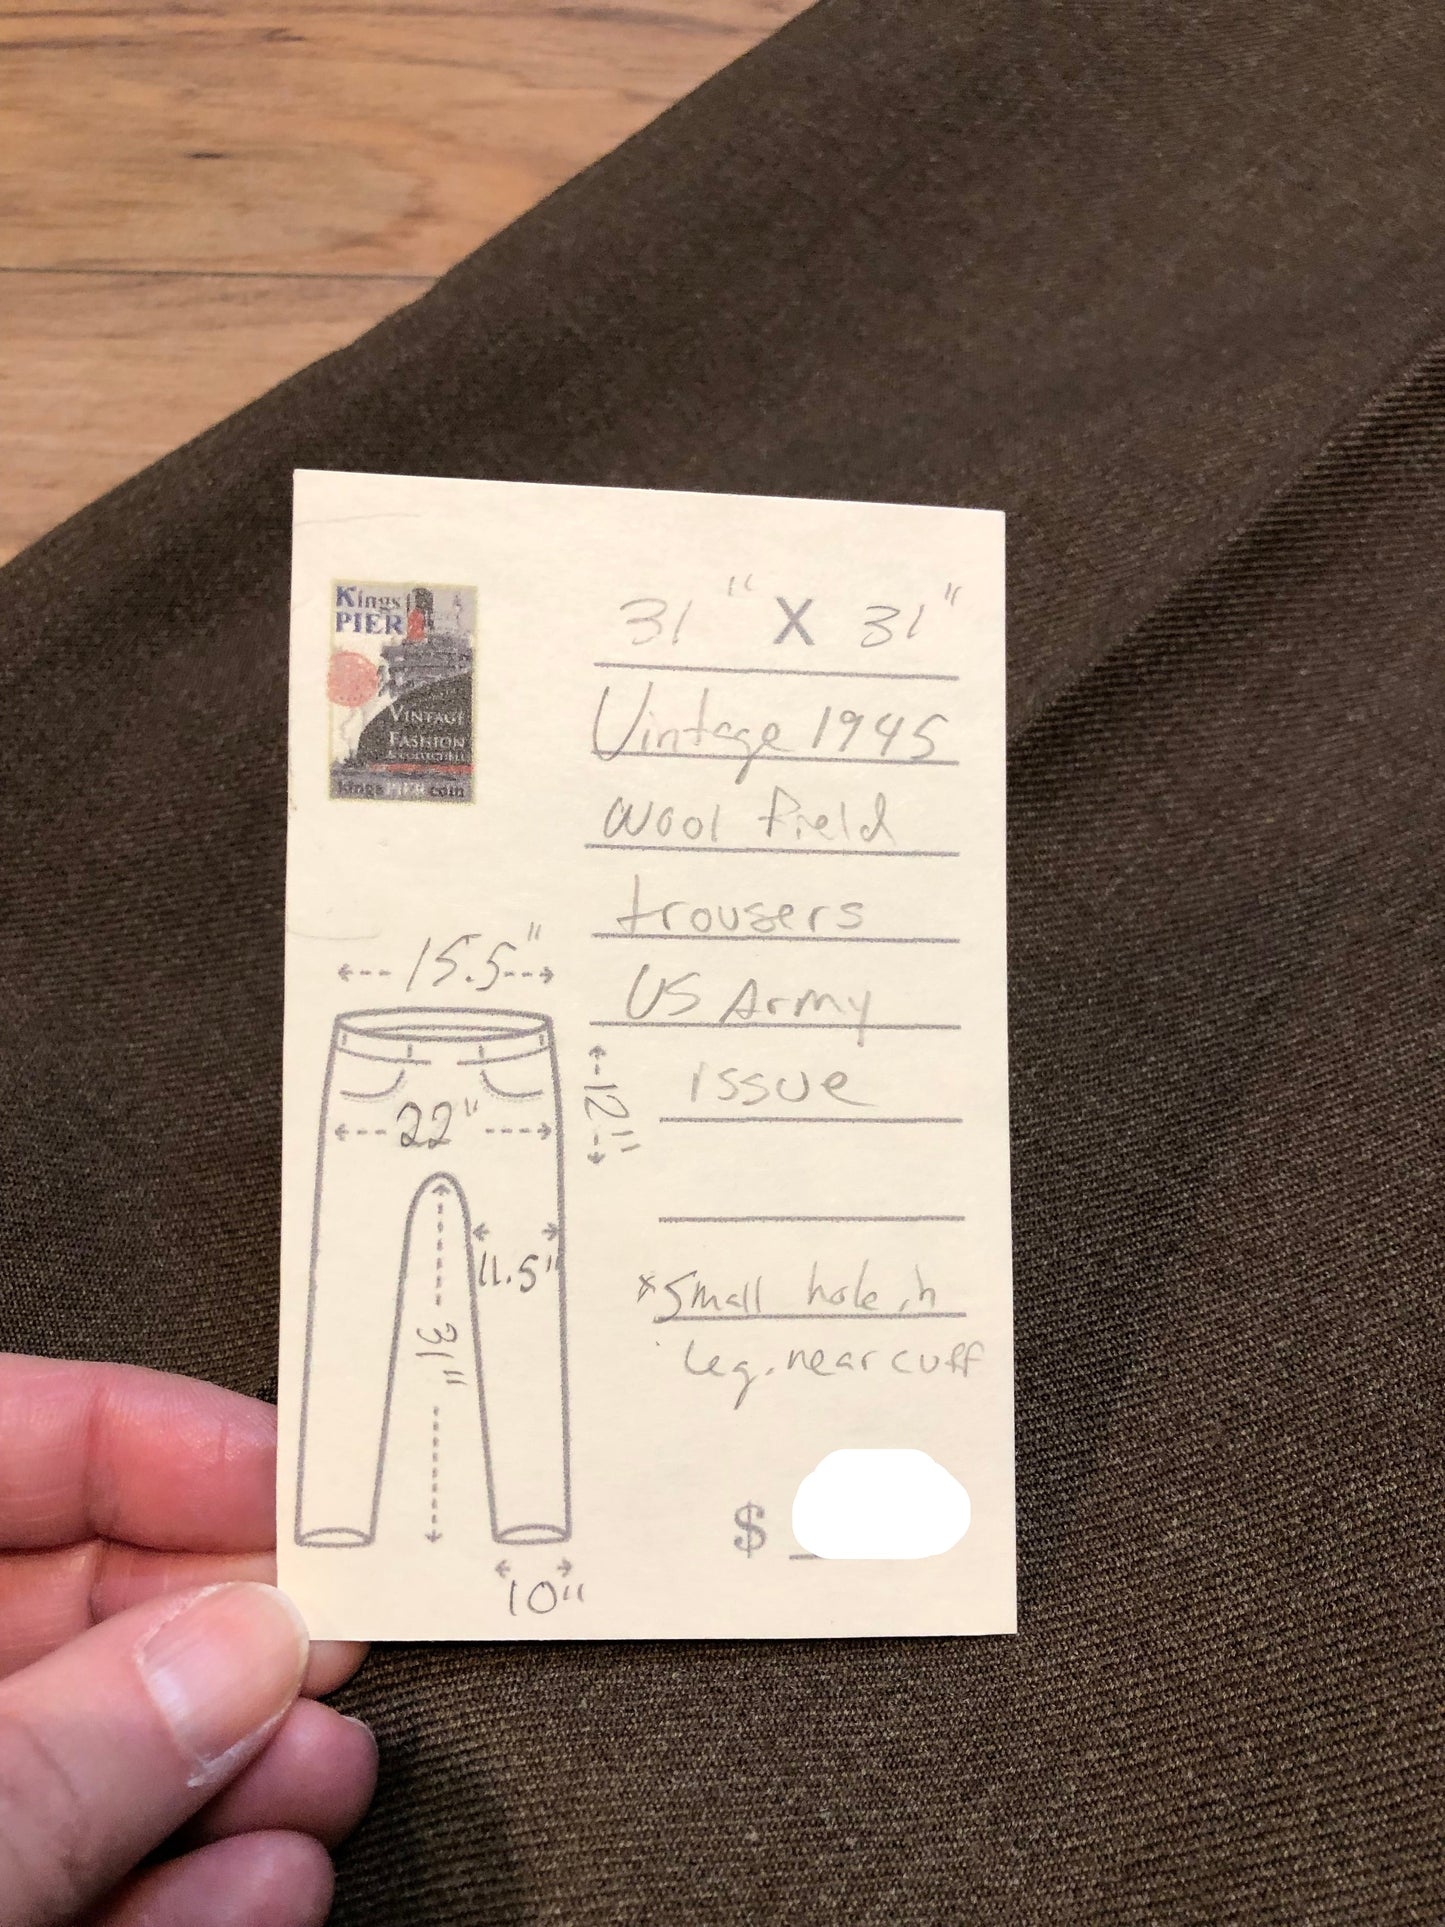 Kings
PIER
VINTAGE
FASHION
& COLLECTIBLE
kingsPIER.com
31" X 31"
Vintage 1945
wool field
trousers
US Army
issue
15.5"
12"
22"
11.5"
31"
10"
*Small hole in
leg. near cuff
$